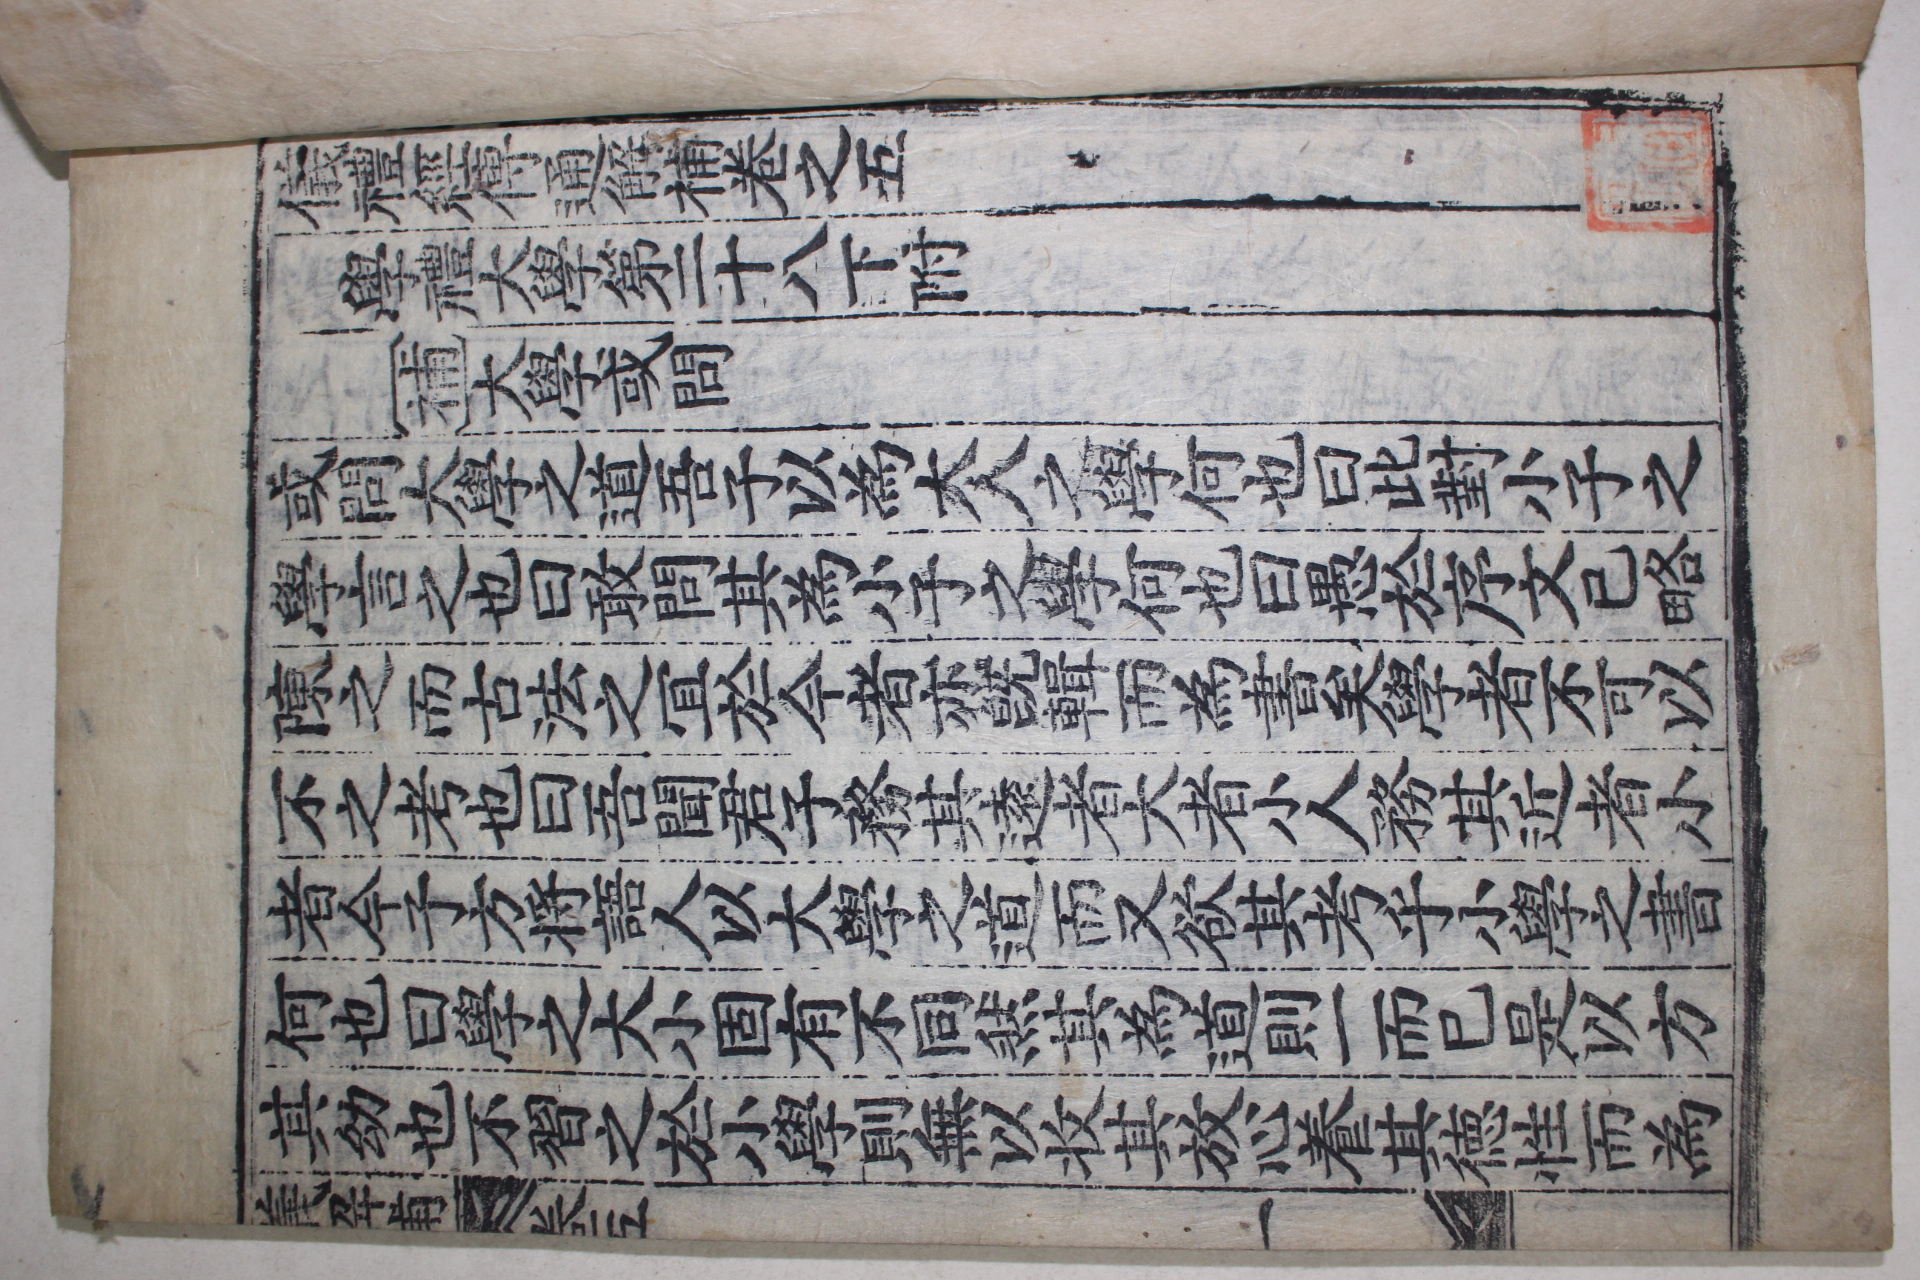 儀禮經傳通解補卷之五
學禮大學第二十八下附
〔補〕大學或問
或問大學之道吾子以為大人之學何也曰此對小子之
學言之也曰敢問其為小子之學何也曰愚於序文已略
陳之而古法之宜於今者亦旣輯而為書矣學者不可以
不之考也曰吾聞君子務其遠者大者小人務其近者小
者今子方將語人以大學之道而又欲其考乎小學之書
何也曰學之大小固有不同然其為道則一而已是以方
其幼也不習之於小學則無以收其放心養其德性而為
儀解補 卷之五 一